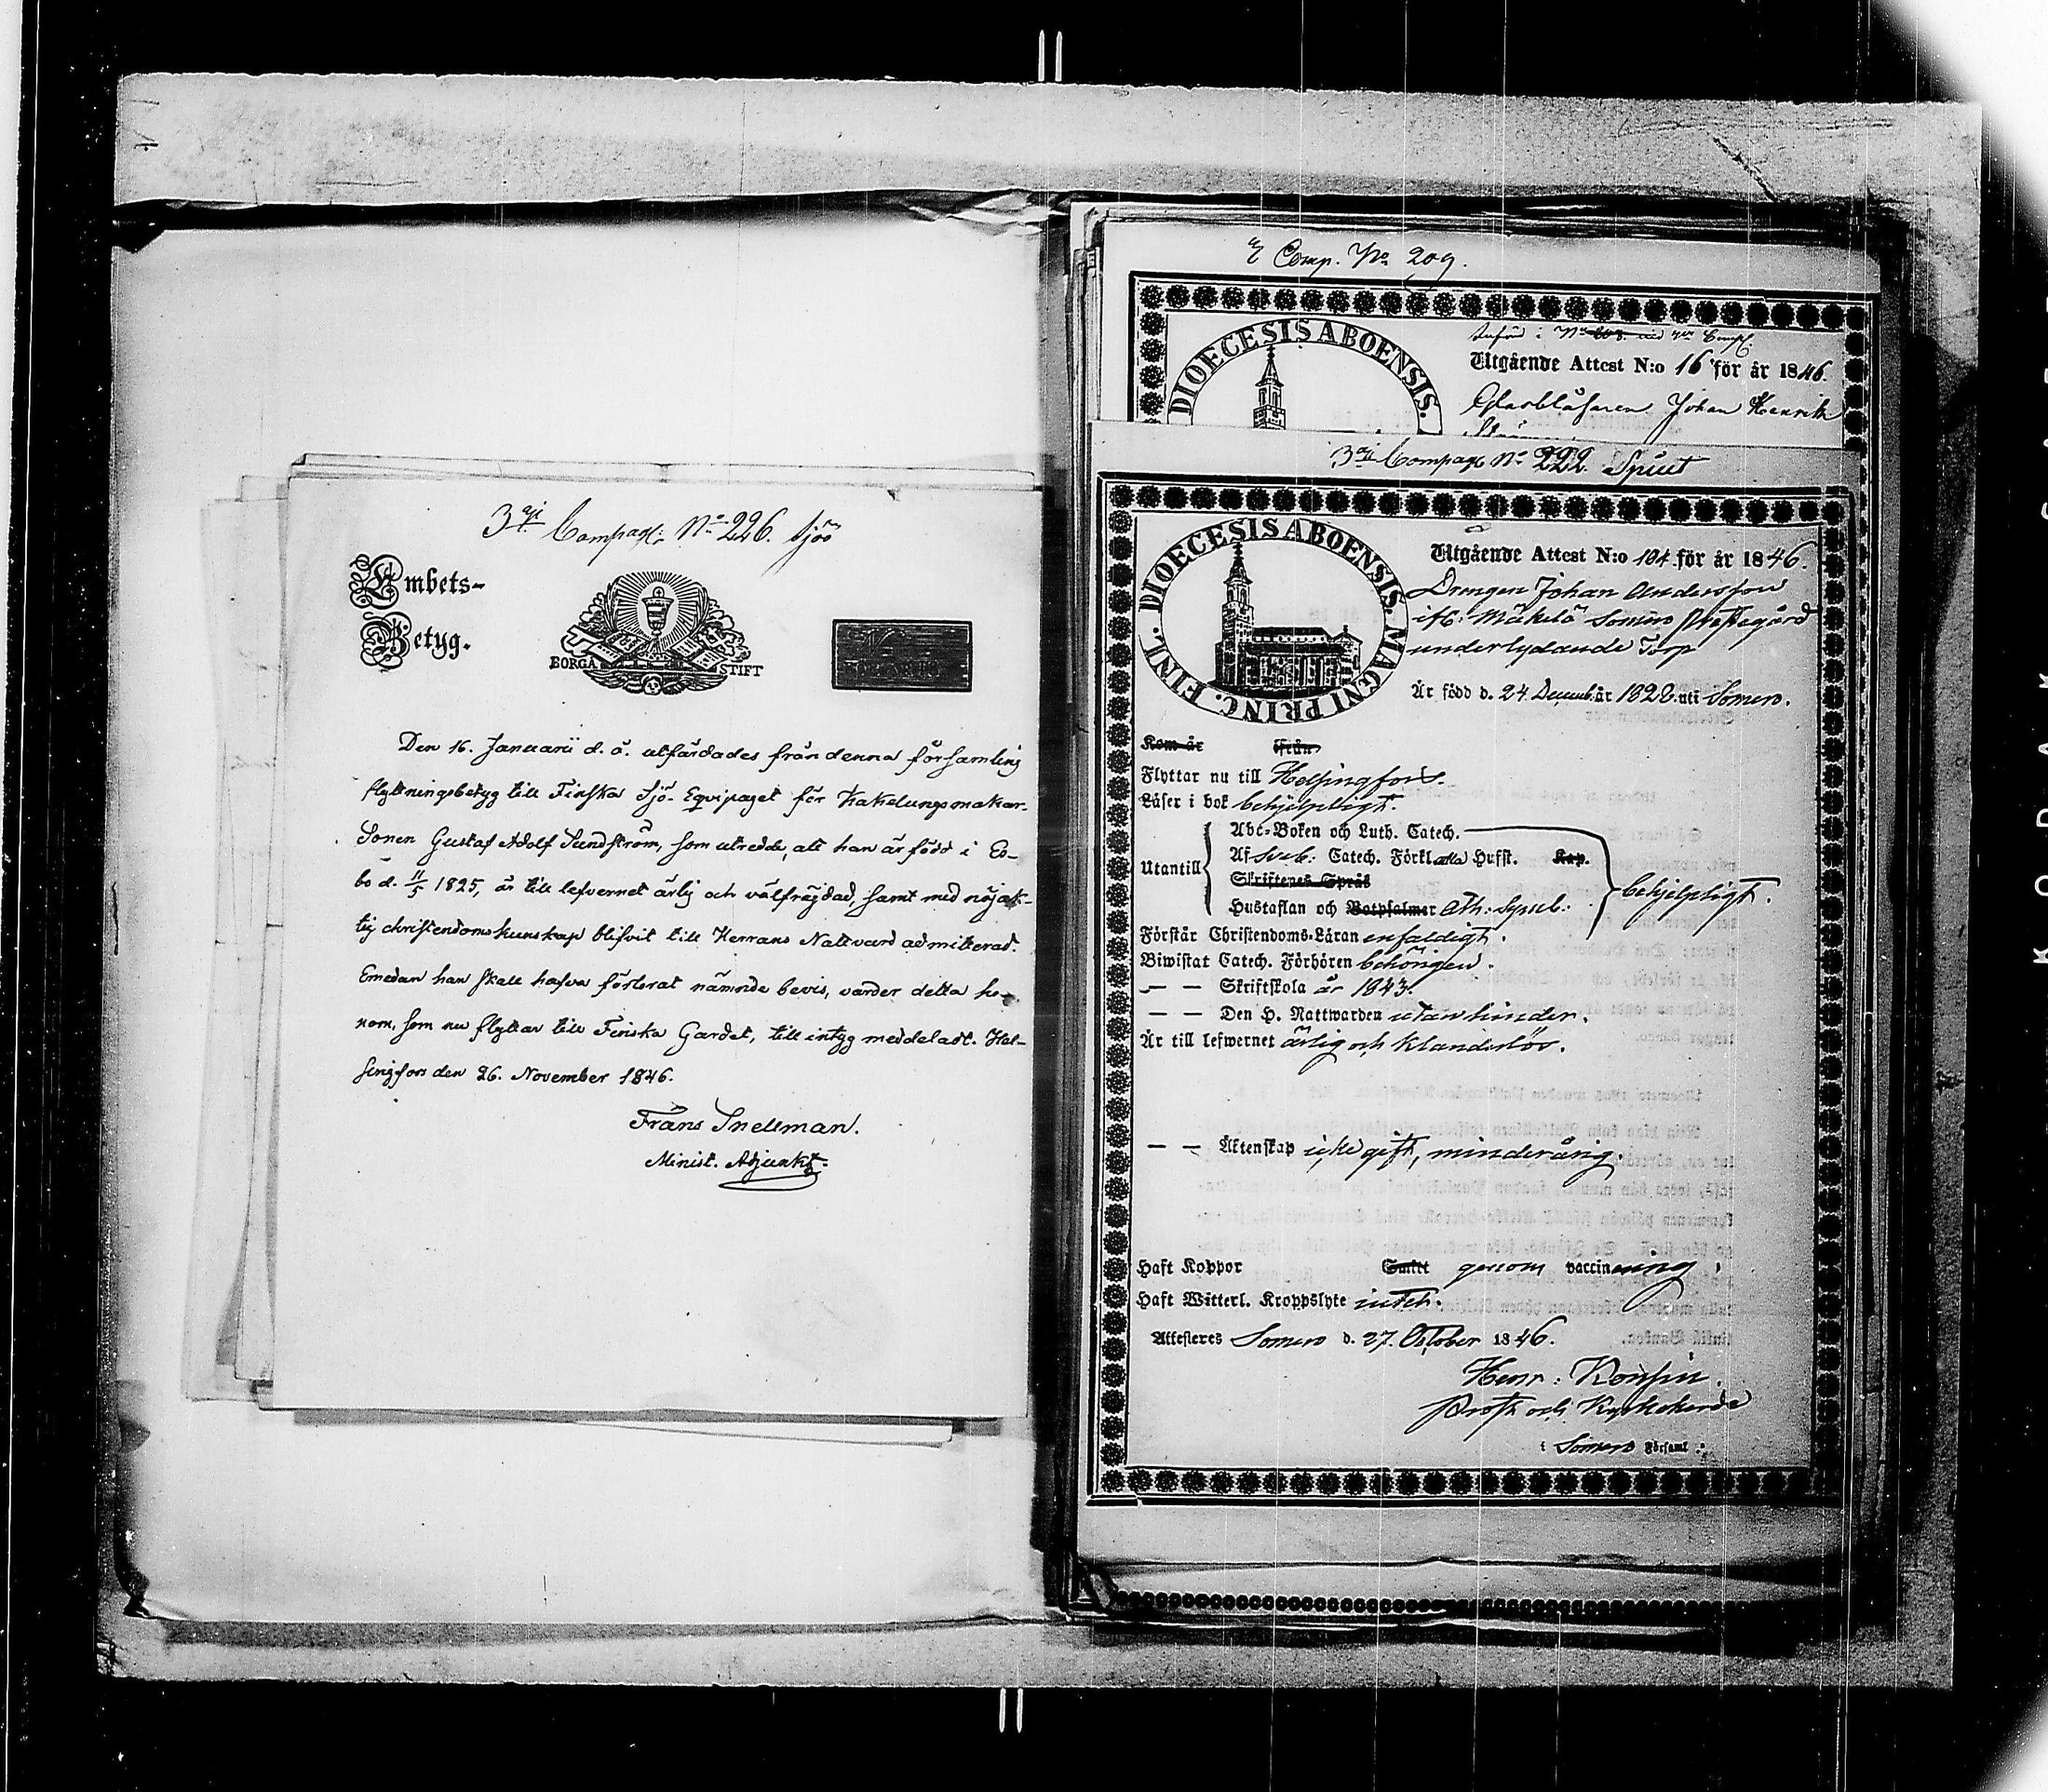 3dje Compagl: No 226. Sjöö
Embets-
Betyg.
BORGÅ STIFT
Den 16. Januarii d. å. utfärdades från denna församling
flyttningsbetyg till Finska Sjö-Equipaget för Kakelungsmakar-
Sonen Gustaf Adolf Sundström, som utredde, att han är född i Es-
bo d. 11/5 1825, är till lefvernet ärlig och välfrägdad, samt med nöjak-
tig christendomskunskap blifvit till Herrans Nattvard admitterad.
Emedan han skall hafva förlorat nämnde bevis, varder detta ho-
nom, som nu flyttar till Finska Gardet, till intyg meddeladt. Hel-
singfors den 26. November 1846.
Frans Snellman.
Minist. Adjunkt.
Comp. No 209.
DIOECESIS ABOENSIS.
Utgående Attest N:o 16 för år 1846.
Glasblåsaren Johan Henrik
3dje Compagl No 222. Spuut
DIOECESIS ABOENSIS. MAGNI PRINC. FINL.
Utgående Attest N:o 104 för år 1846.
Drengen Johan Andersson
ifr: Mäkelä Somero Prestegård
underlydande Torp
Är född d. 24 Decemb. år 1828 uti Somero.
Kom år ifrån
Flyttar nu till Helsingfors.
Läser i bok behjelpligt.
Utantill
Abc-Boken och Luth. Catech.
Af Sveb: Catech. Förkl alla Hufst. Kap.
Skriftenes Språk
Hustaflan och Botpsalmer Ath: Symb:
behjelpligt.
Förstår Christendoms-Läran enfaldigt.
Biwistat Catech. Förhören behörigen.
— — Skriftskola år 1843.
— — Den H. Nattwarden utan hinder.
Är till lefwernet ärlig och klanderlös.
— — Äktenskap icke gift, minderårig.
Haft Koppor Smitt genom vaccinering.
Haft Witterl. Kroppslyte intet.
Attesteres Somero d. 27. October 1846.
Henr: Konsin.
Prost och Kyrkoherde
i Somero Församl:
KODAK SAFE